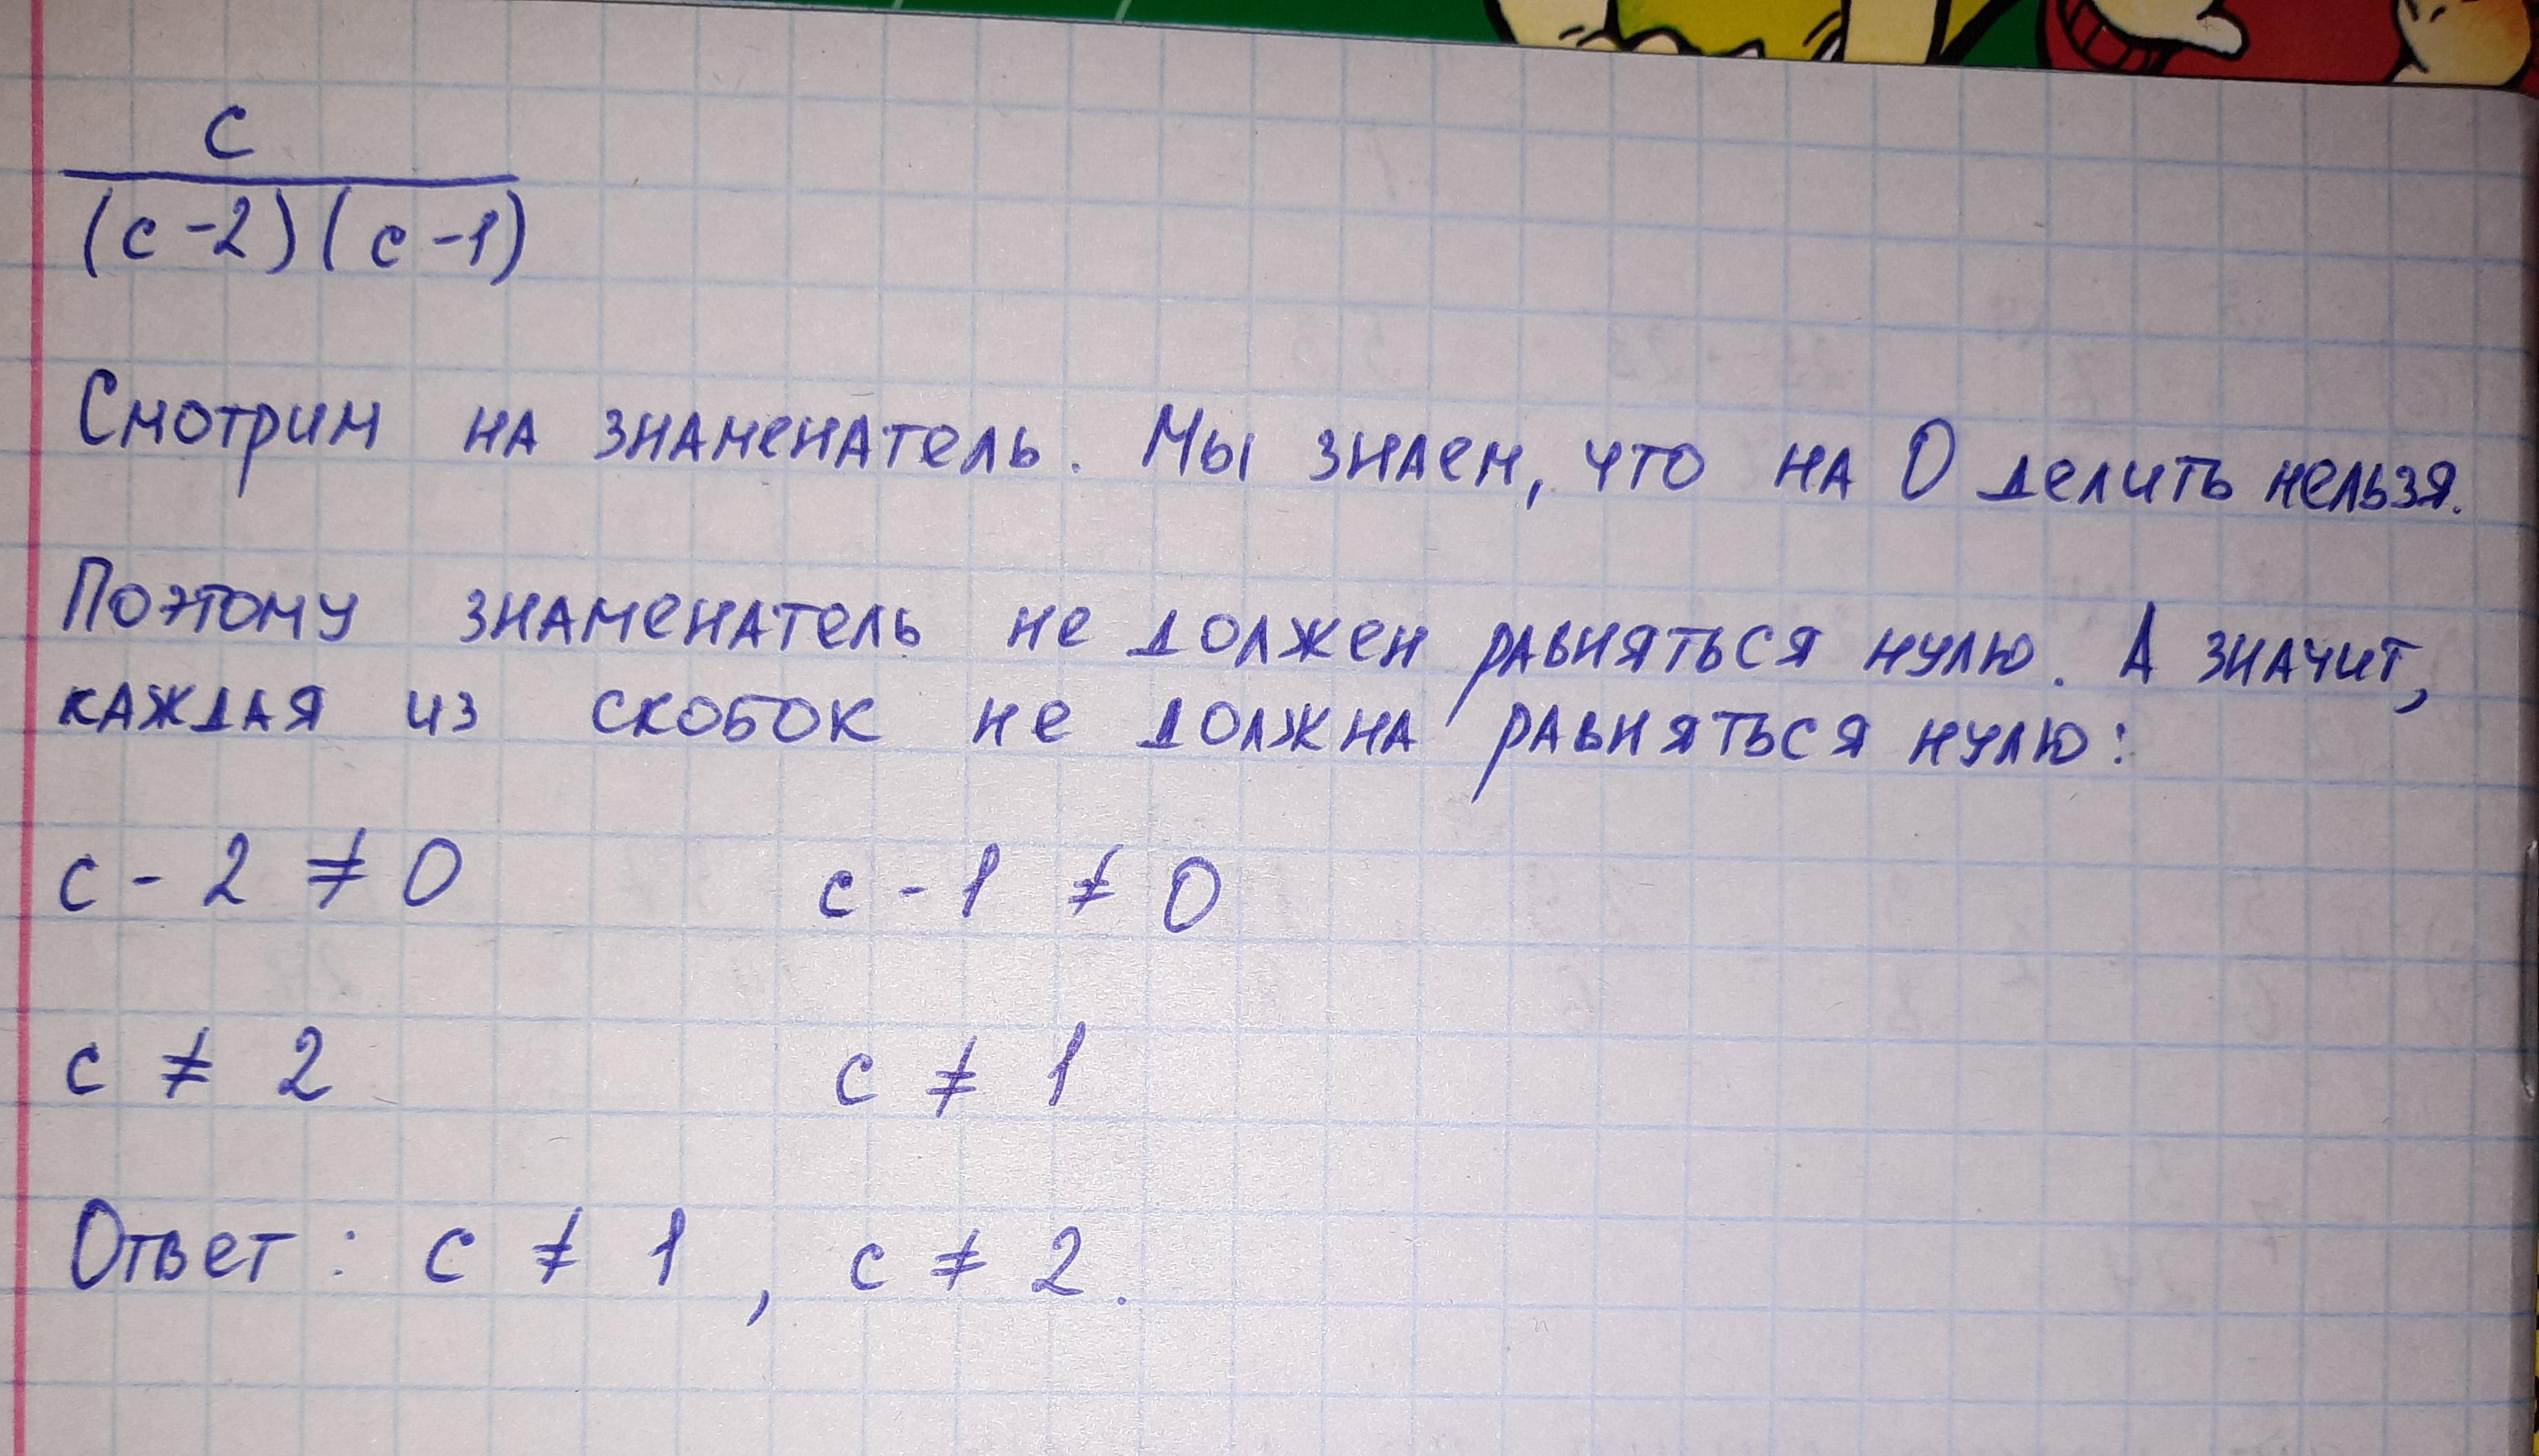 c
(c-2)(c-1)
Смотрим на знаменатель. Мы знаем, что на 0 делить нельзя.
Поэтому знаменатель не должен равняться нулю. А значит,
каждая из скобок не должна равняться нулю:
c - 2 ≠ 0 c - 1 ≠ 0
c ≠ 2 c ≠ 1
Ответ: c ≠ 1, c ≠ 2.